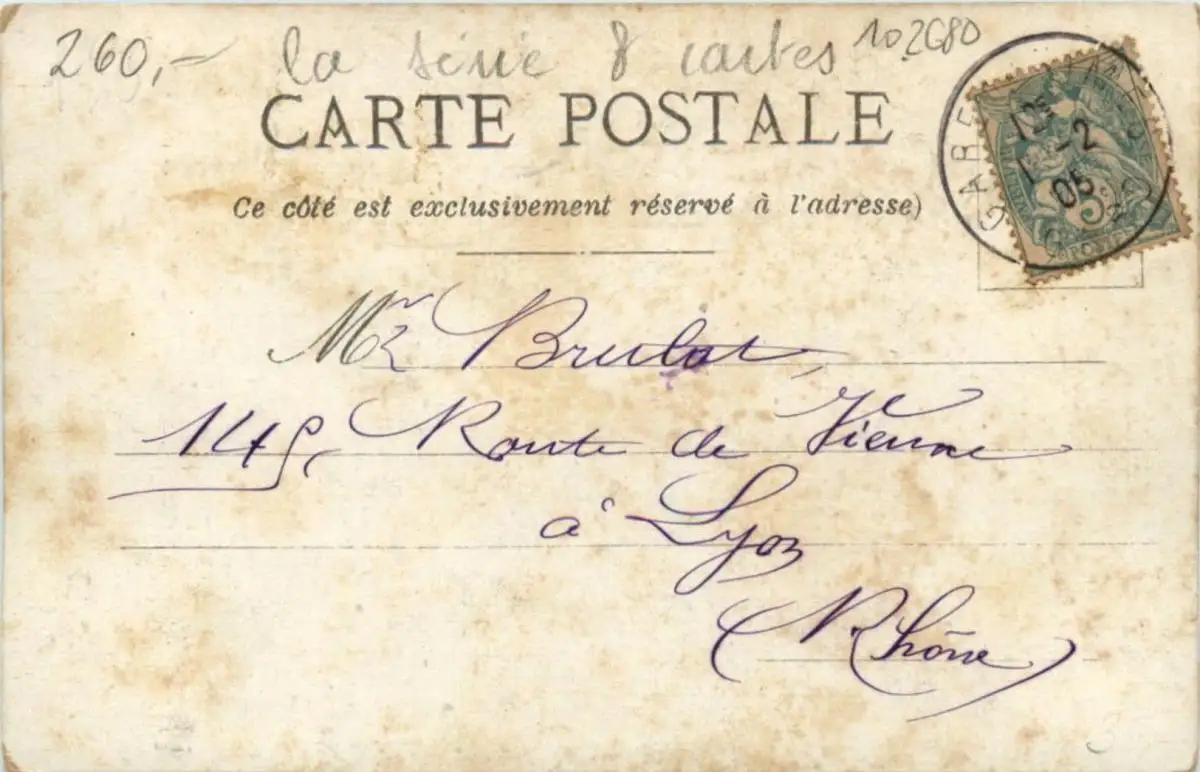 260,- la série 8 cartes 102680
CARTE POSTALE
Ce côté est exclusivement réservé à l'adresse)
GARE
1 -2
05
5c
POSTES
Mr Brulat,
149, Route de Vienne
à Lyon
(Rhône)